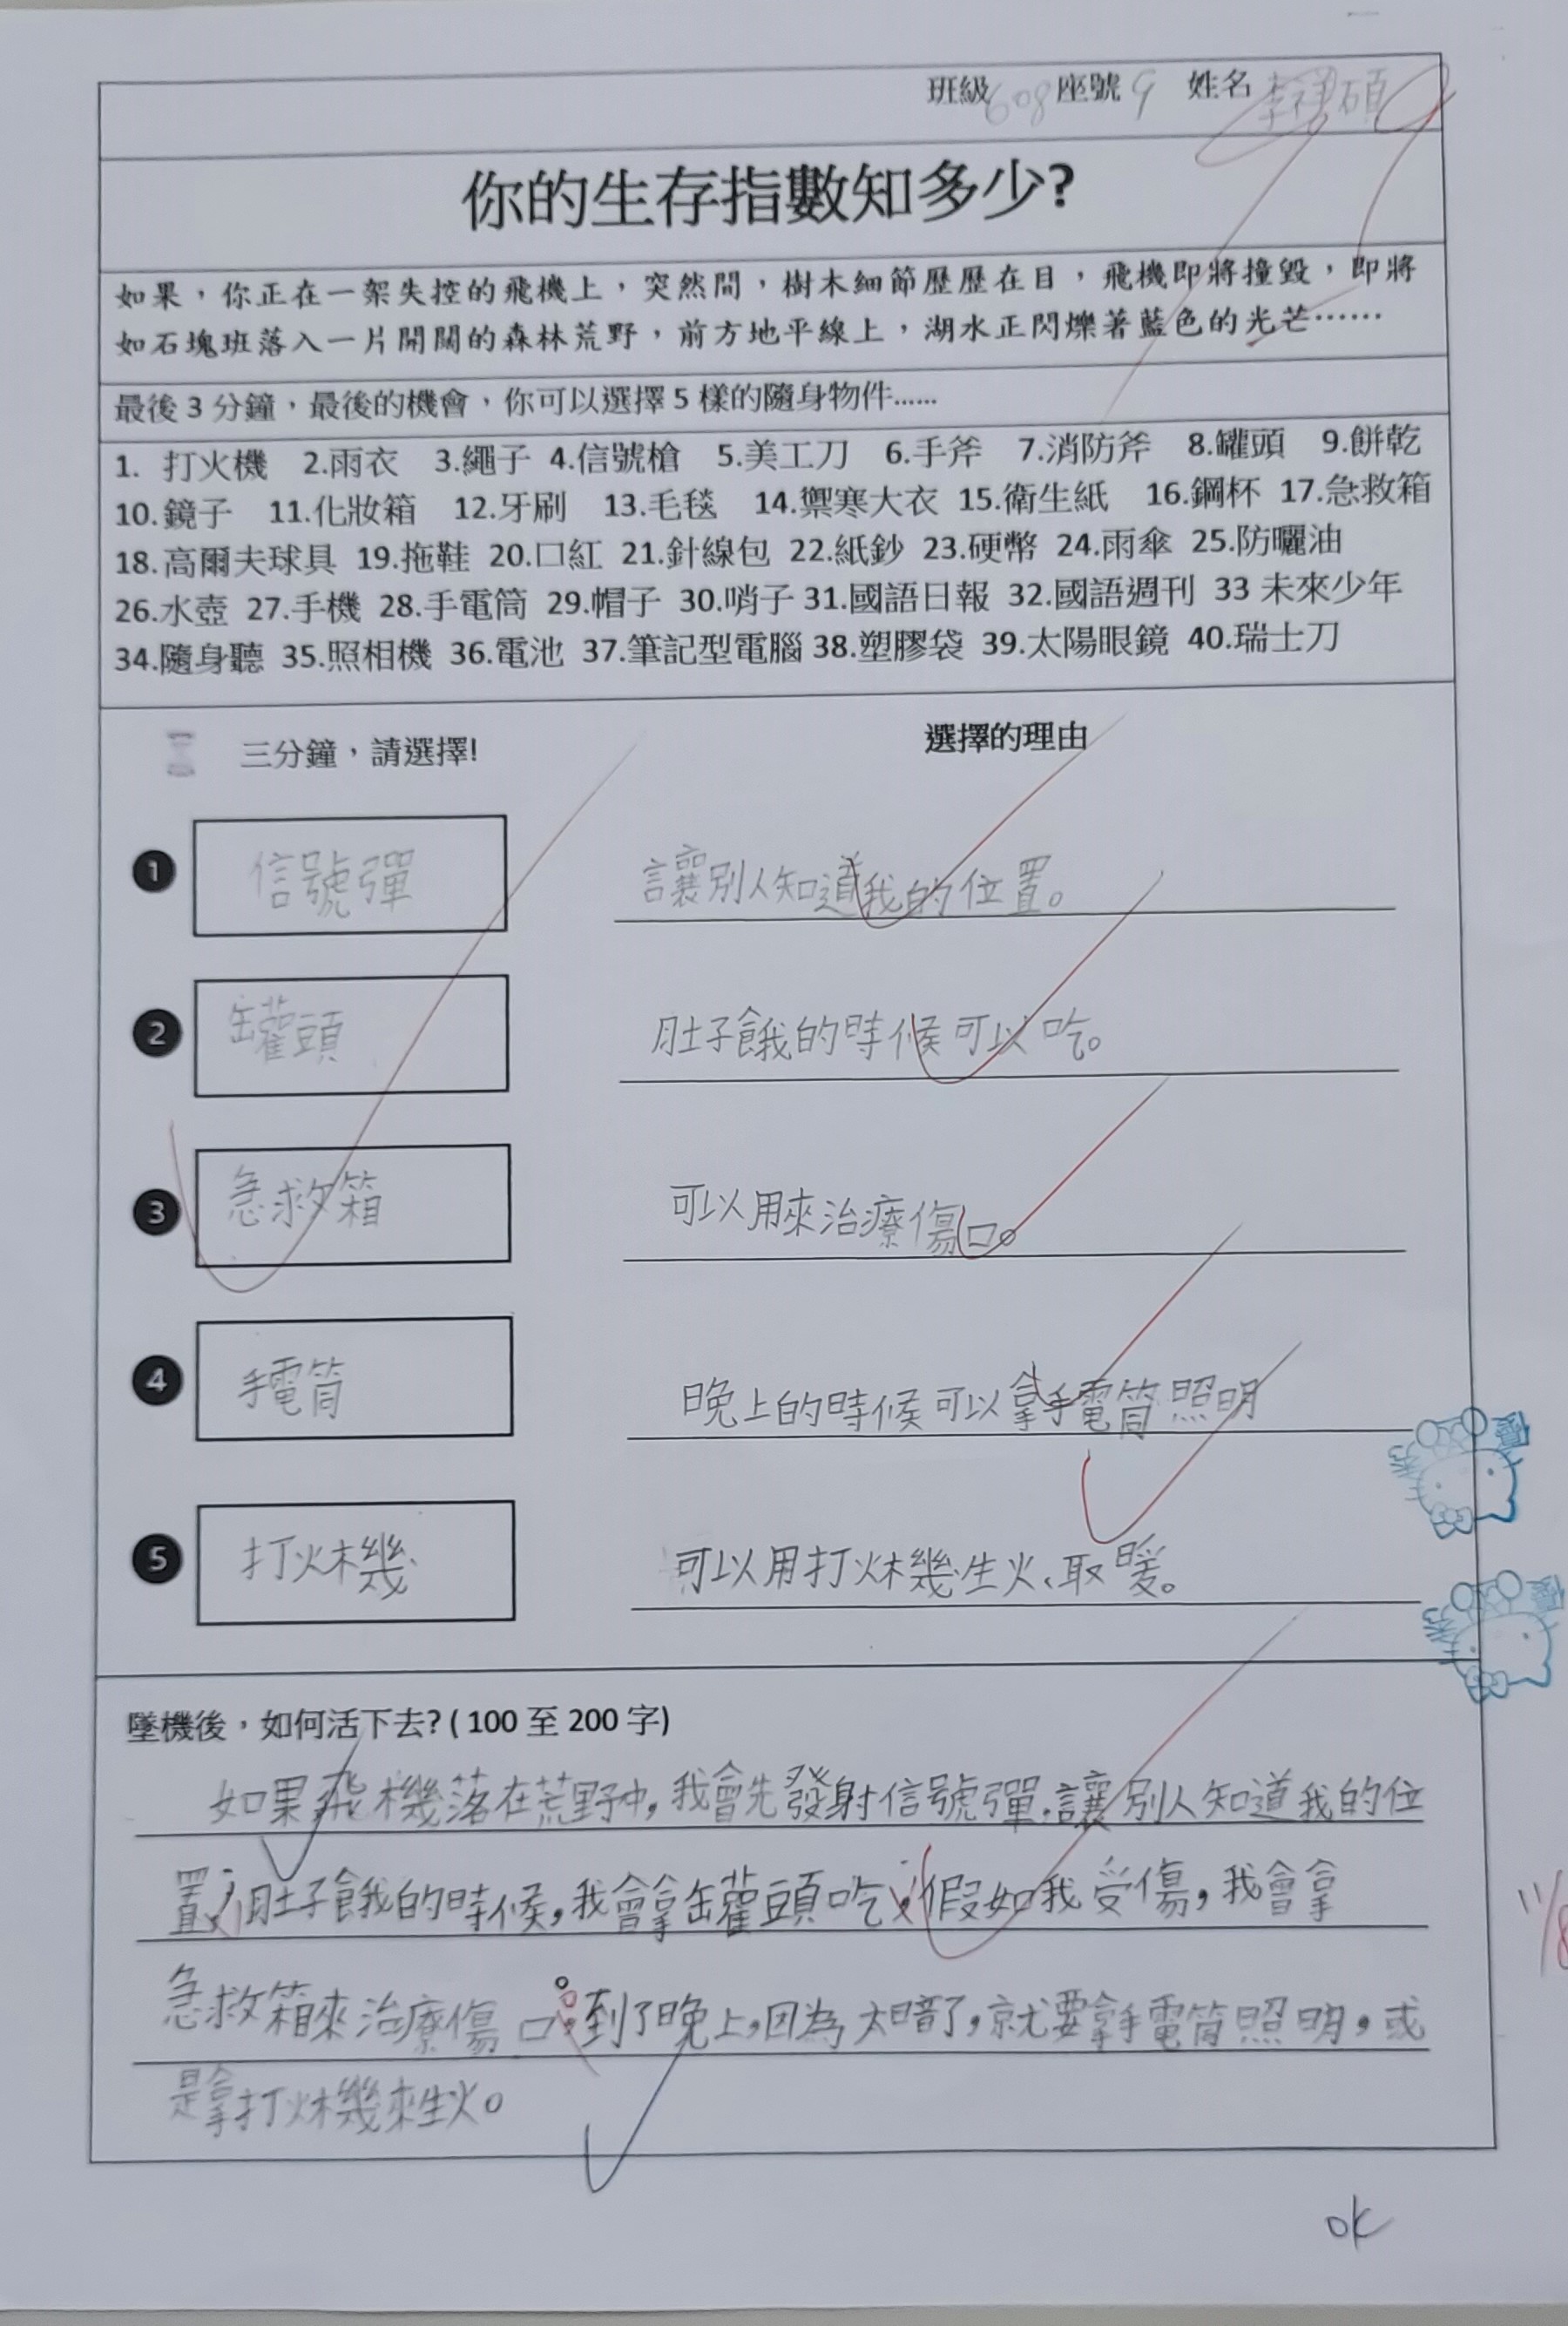 班級608座號9 姓名李祥碩
你的生存指數知多少?
如果，你正在一架失控的飛機上，突然間，樹木細節歷歷在目，飛機即將撞毀，即將
如石塊班落入一片開闊的森林荒野，前方地平線上，湖水正閃爍著藍色的光芒……
最後 3 分鐘，最後的機會，你可以選擇 5 樣的隨身物件……
1. 打火機 2.雨衣 3.繩子 4.信號槍 5.美工刀 6.手斧 7.消防斧 8.罐頭 9.餅乾
10.鏡子 11.化妝箱 12.牙刷 13.毛毯 14.禦寒大衣 15.衛生紙 16.鋼杯 17.急救箱
18.高爾夫球具 19.拖鞋 20.口紅 21.針線包 22.紙鈔 23.硬幣 24.雨傘 25.防曬油
26.水壺 27.手機 28.手電筒 29.帽子 30.哨子 31.國語日報 32.國語週刊 33 未來少年
34.隨身聽 35.照相機 36.電池 37.筆記型電腦 38.塑膠袋 39.太陽眼鏡 40.瑞士刀
三分鐘，請選擇! 選擇的理由
1 信號彈 讓別人知道我的位置。
2 罐頭 肚子餓的時候可以吃。
3 急救箱 可以用來治療傷口。
4 手電筒 晚上的時候可以拿手電筒照明
5 打火機 可以用打火機生火、取暖。
優秀
優秀
墜機後，如何活下去? ( 100 至 200 字)
如果飛機落在荒野中,我會先發射信號彈,讓別人知道我的位
置;肚子餓的時候,我會拿罐頭吃;假如我受傷,我會拿
急救箱來治療傷口。到了晚上,因為太暗了,就要拿手電筒照明,或
是拿打火機來生火。
11/8
ok